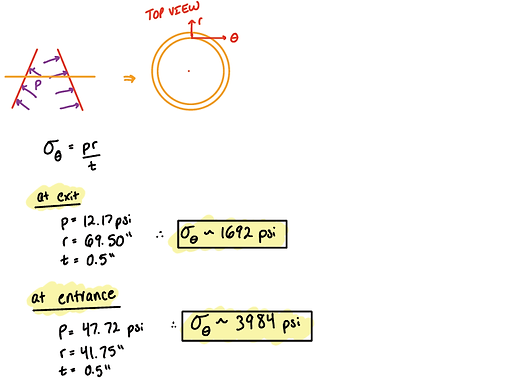 TOP VIEW
r
θ
P
⇒
σ_θ = pr/t
at exit
p = 12.17 psi
r = 69.50"
t = 0.5"
∴ σ_θ ~ 1692 psi
at entrance
P = 47.72 psi
r = 41.75"
t = 0.5"
∴ σ_θ ~ 3984 psi